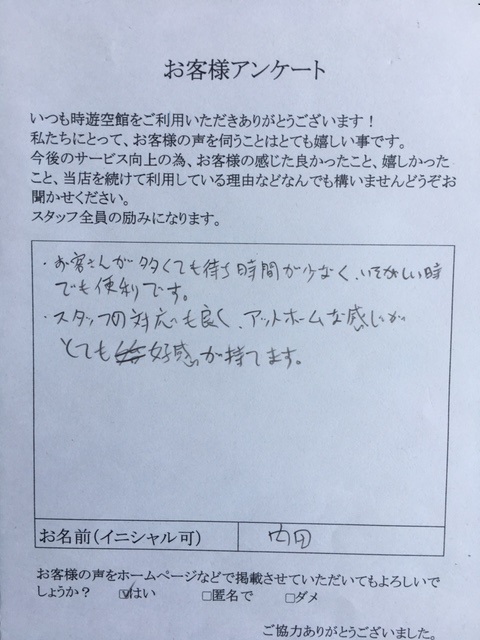 お客様アンケート
いつも時遊空館をご利用いただきありがとうございます！
私たちにとって、お客様の声を伺うことはとても嬉しい事です。
今後のサービス向上の為、お客様の感じた良かったこと、嬉しかった
こと、当店を続けて利用している理由などなんでも構いませんどうぞお
聞かせください。
スタッフ全員の励みになります。
・お客さんが多くても待ち時間が少なく、いそがしい時
でも便利です。
・スタッフの対応も良く、アットホームな感じが
とても好感が持てます。
お名前（イニシャル可） 内田
お客様の声をホームページなどで掲載させていただいてもよろしいで
しょうか？ ☑はい □匿名で □ダメ
ご協力ありがとうございました。